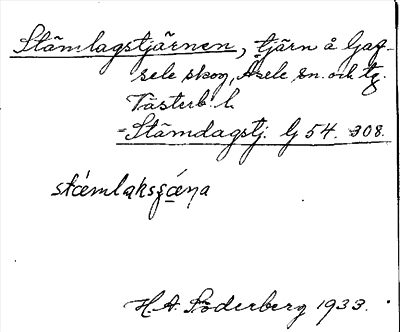 Stämlagstjärnen, tjärn å Gaf-
sele skog, Åsele sn. och tg.
Västerb. l.
=Stämdagstj. G 54. 308.
stǽmlaksʒæ̀ṇa
H.A. Söderberg 1933.